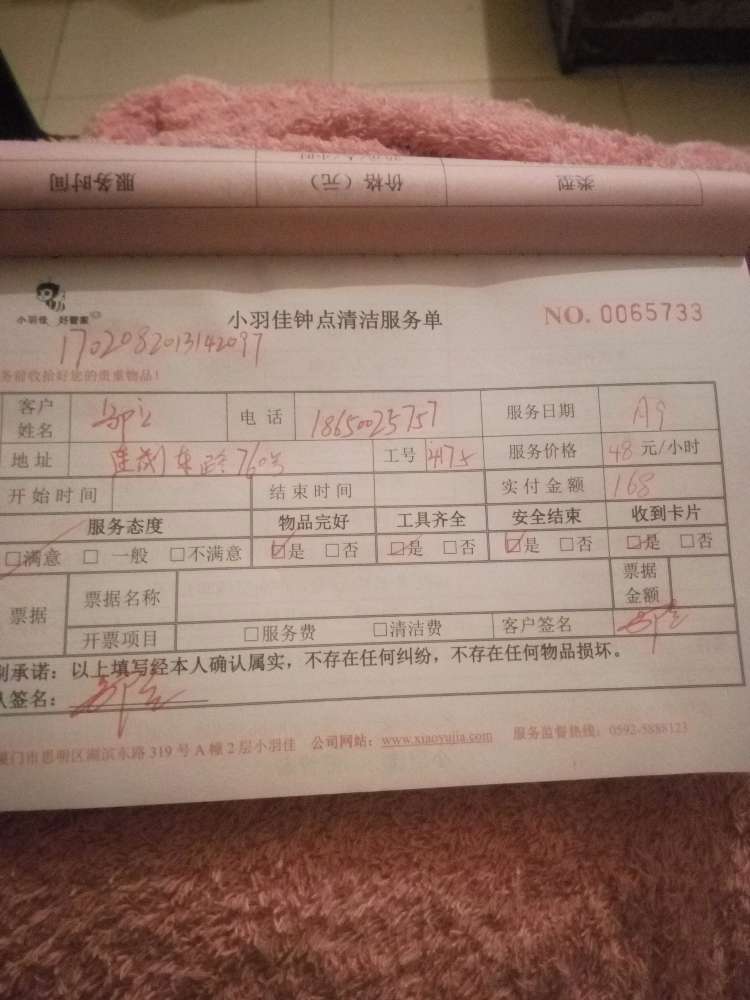 服务时间 价格（元） 类型
小羽佳 好管家
小羽佳钟点清洁服务单
NO. 0065733
1702082013142097
务前收拾好您的贵重物品！
客户姓名 电话 18650025757 服务日期
地址 760号 工号 4175 服务价格 48 元/小时
开始时间 结束时间 实付金额 168
服务态度 物品完好 工具齐全 安全结束 收到卡片
□满意 □ 一般 □不满意 □是 □否 □是 □否 □是 □否 □是 □否
票据 票据名称 票据金额
开票项目 □服务费 □清洁费 客户签名
承诺：以上填写经本人确认属实，不存在任何纠纷，不存在任何物品损坏。
签名：
厦门市思明区湖滨东路 319 号 A 幢 2 层小羽佳 公司网站：www.xiaoyujia.com 服务监督热线：0592-5888123